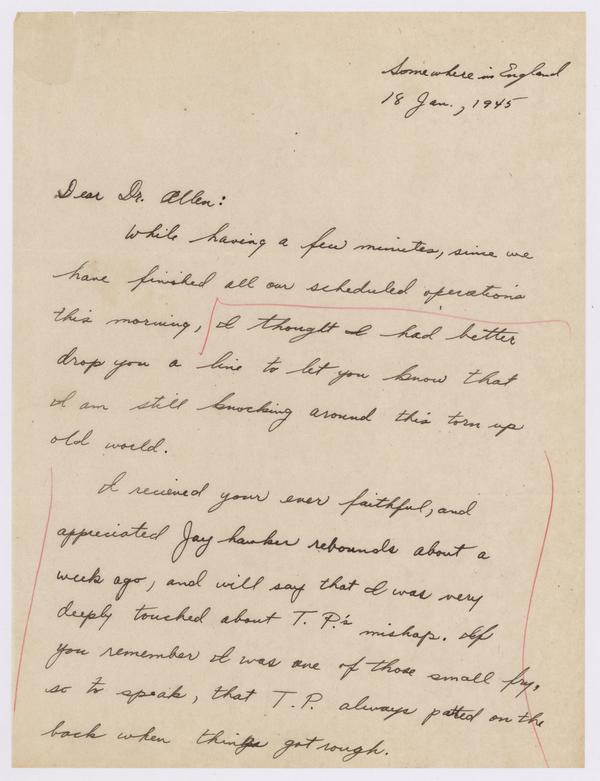 Somewhere in England
18 Jan., 1945
Dear Dr. Allen:
While having a few minutes, since we
have finished all our scheduled operations
this morning, I thought I had better
drop you a line to let you know that
I am still knocking around this torn up
old world.
I recieved your ever faithful, and
appreciated Jay hawker rebounds about a
week ago, and will say that I was very
deeply touched about T. P.'s mishap. If
you remember I was one of those small fry,
so to speak, that T.P. always patted on the
back when things got rough.